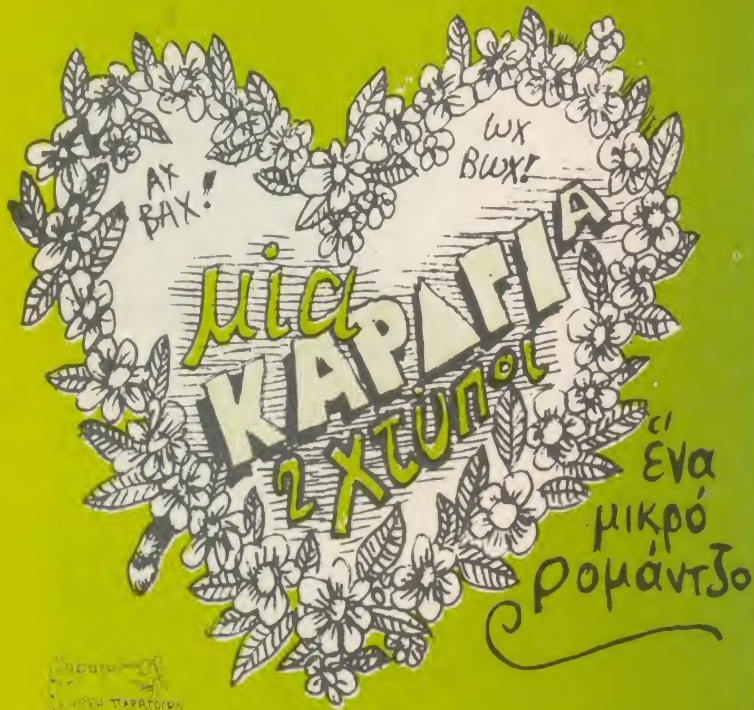 ΑΧ
ΒΑΧ!
ωχ
Βωχ!
μία
ΚΑΡΔΓΙΑ
2 χτύποι
ένα
μικρό
Ρομάντζο